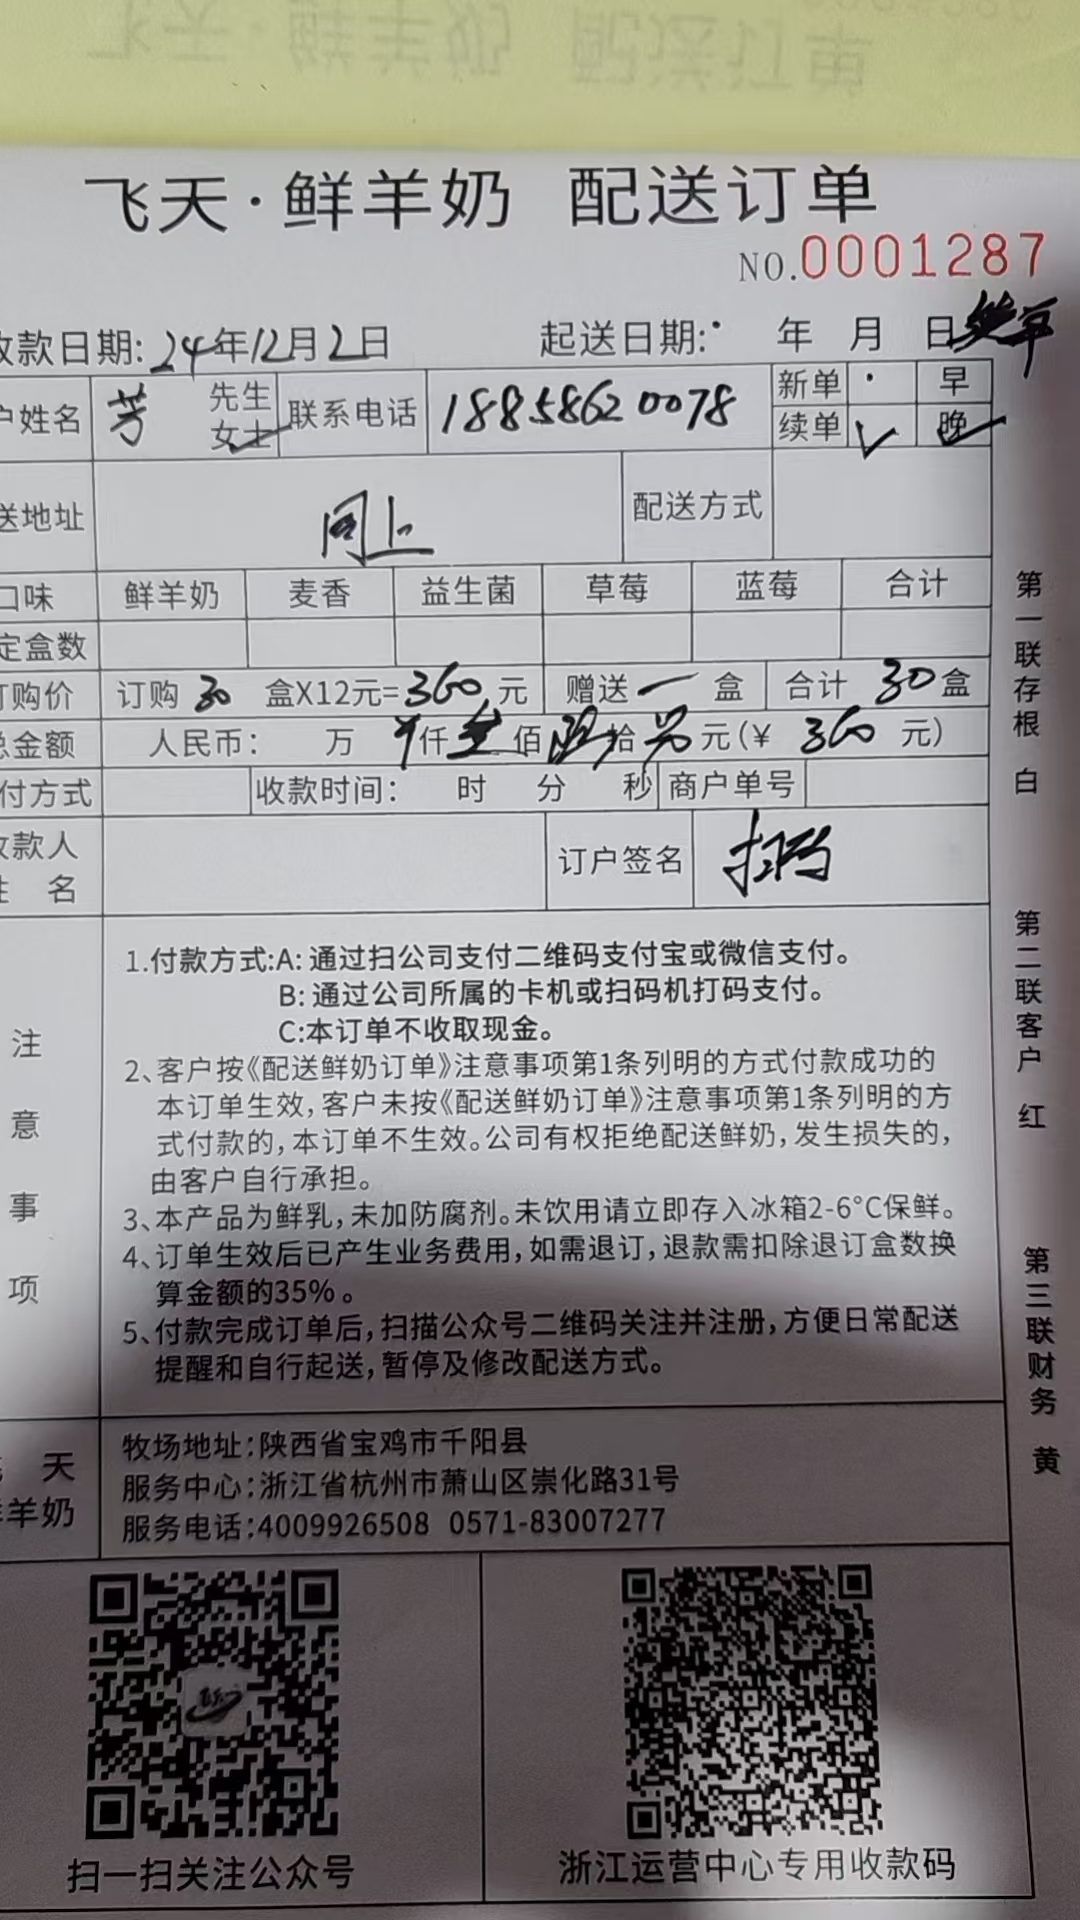 飞天·鲜羊奶 配送订单
NO.0001287
收款日期:24年12月2日 起送日期: 年 月 日
户姓名 芳 先生 女士 联系电话 18858620078 新单 早
续单 √ 晚
送地址 同上 配送方式
口味 鲜羊奶 麦香 益生菌 草莓 蓝莓 合计
定盒数
订购价 订购30 盒X12元=360元 赠送一盒 合计 30盒
总金额 人民币： 万 仟叁佰陆拾 元(¥ 360 元)
付方式 收款时间： 时 分 秒 商户单号
收款人
姓 名 订户签名 扫码
注意事项
1.付款方式:A:通过扫公司支付二维码支付宝或微信支付。
B:通过公司所属的卡机或扫码机打码支付。
C:本订单不收取现金。
2、客户按《配送鲜奶订单》注意事项第1条列明的方式付款成功的
本订单生效,客户未按《配送鲜奶订单》注意事项第1条列明的方
式付款的,本订单不生效。公司有权拒绝配送鲜奶,发生损失的,
由客户自行承担。
3、本产品为鲜乳,未加防腐剂。未饮用请立即存入冰箱2-6°C保鲜。
4、订单生效后已产生业务费用,如需退订,退款需扣除退订盒数换
算金额的35%。
5、付款完成订单后,扫描公众号二维码关注并注册,方便日常配送
提醒和自行起送,暂停及修改配送方式。
天
羊奶
牧场地址:陕西省宝鸡市千阳县
服务中心:浙江省杭州市萧山区崇化路31号
服务电话:4009926508 0571-83007277
扫一扫关注公众号
浙江运营中心专用收款码
第一联存根 白
第二联客户 红
第三联财务 黄